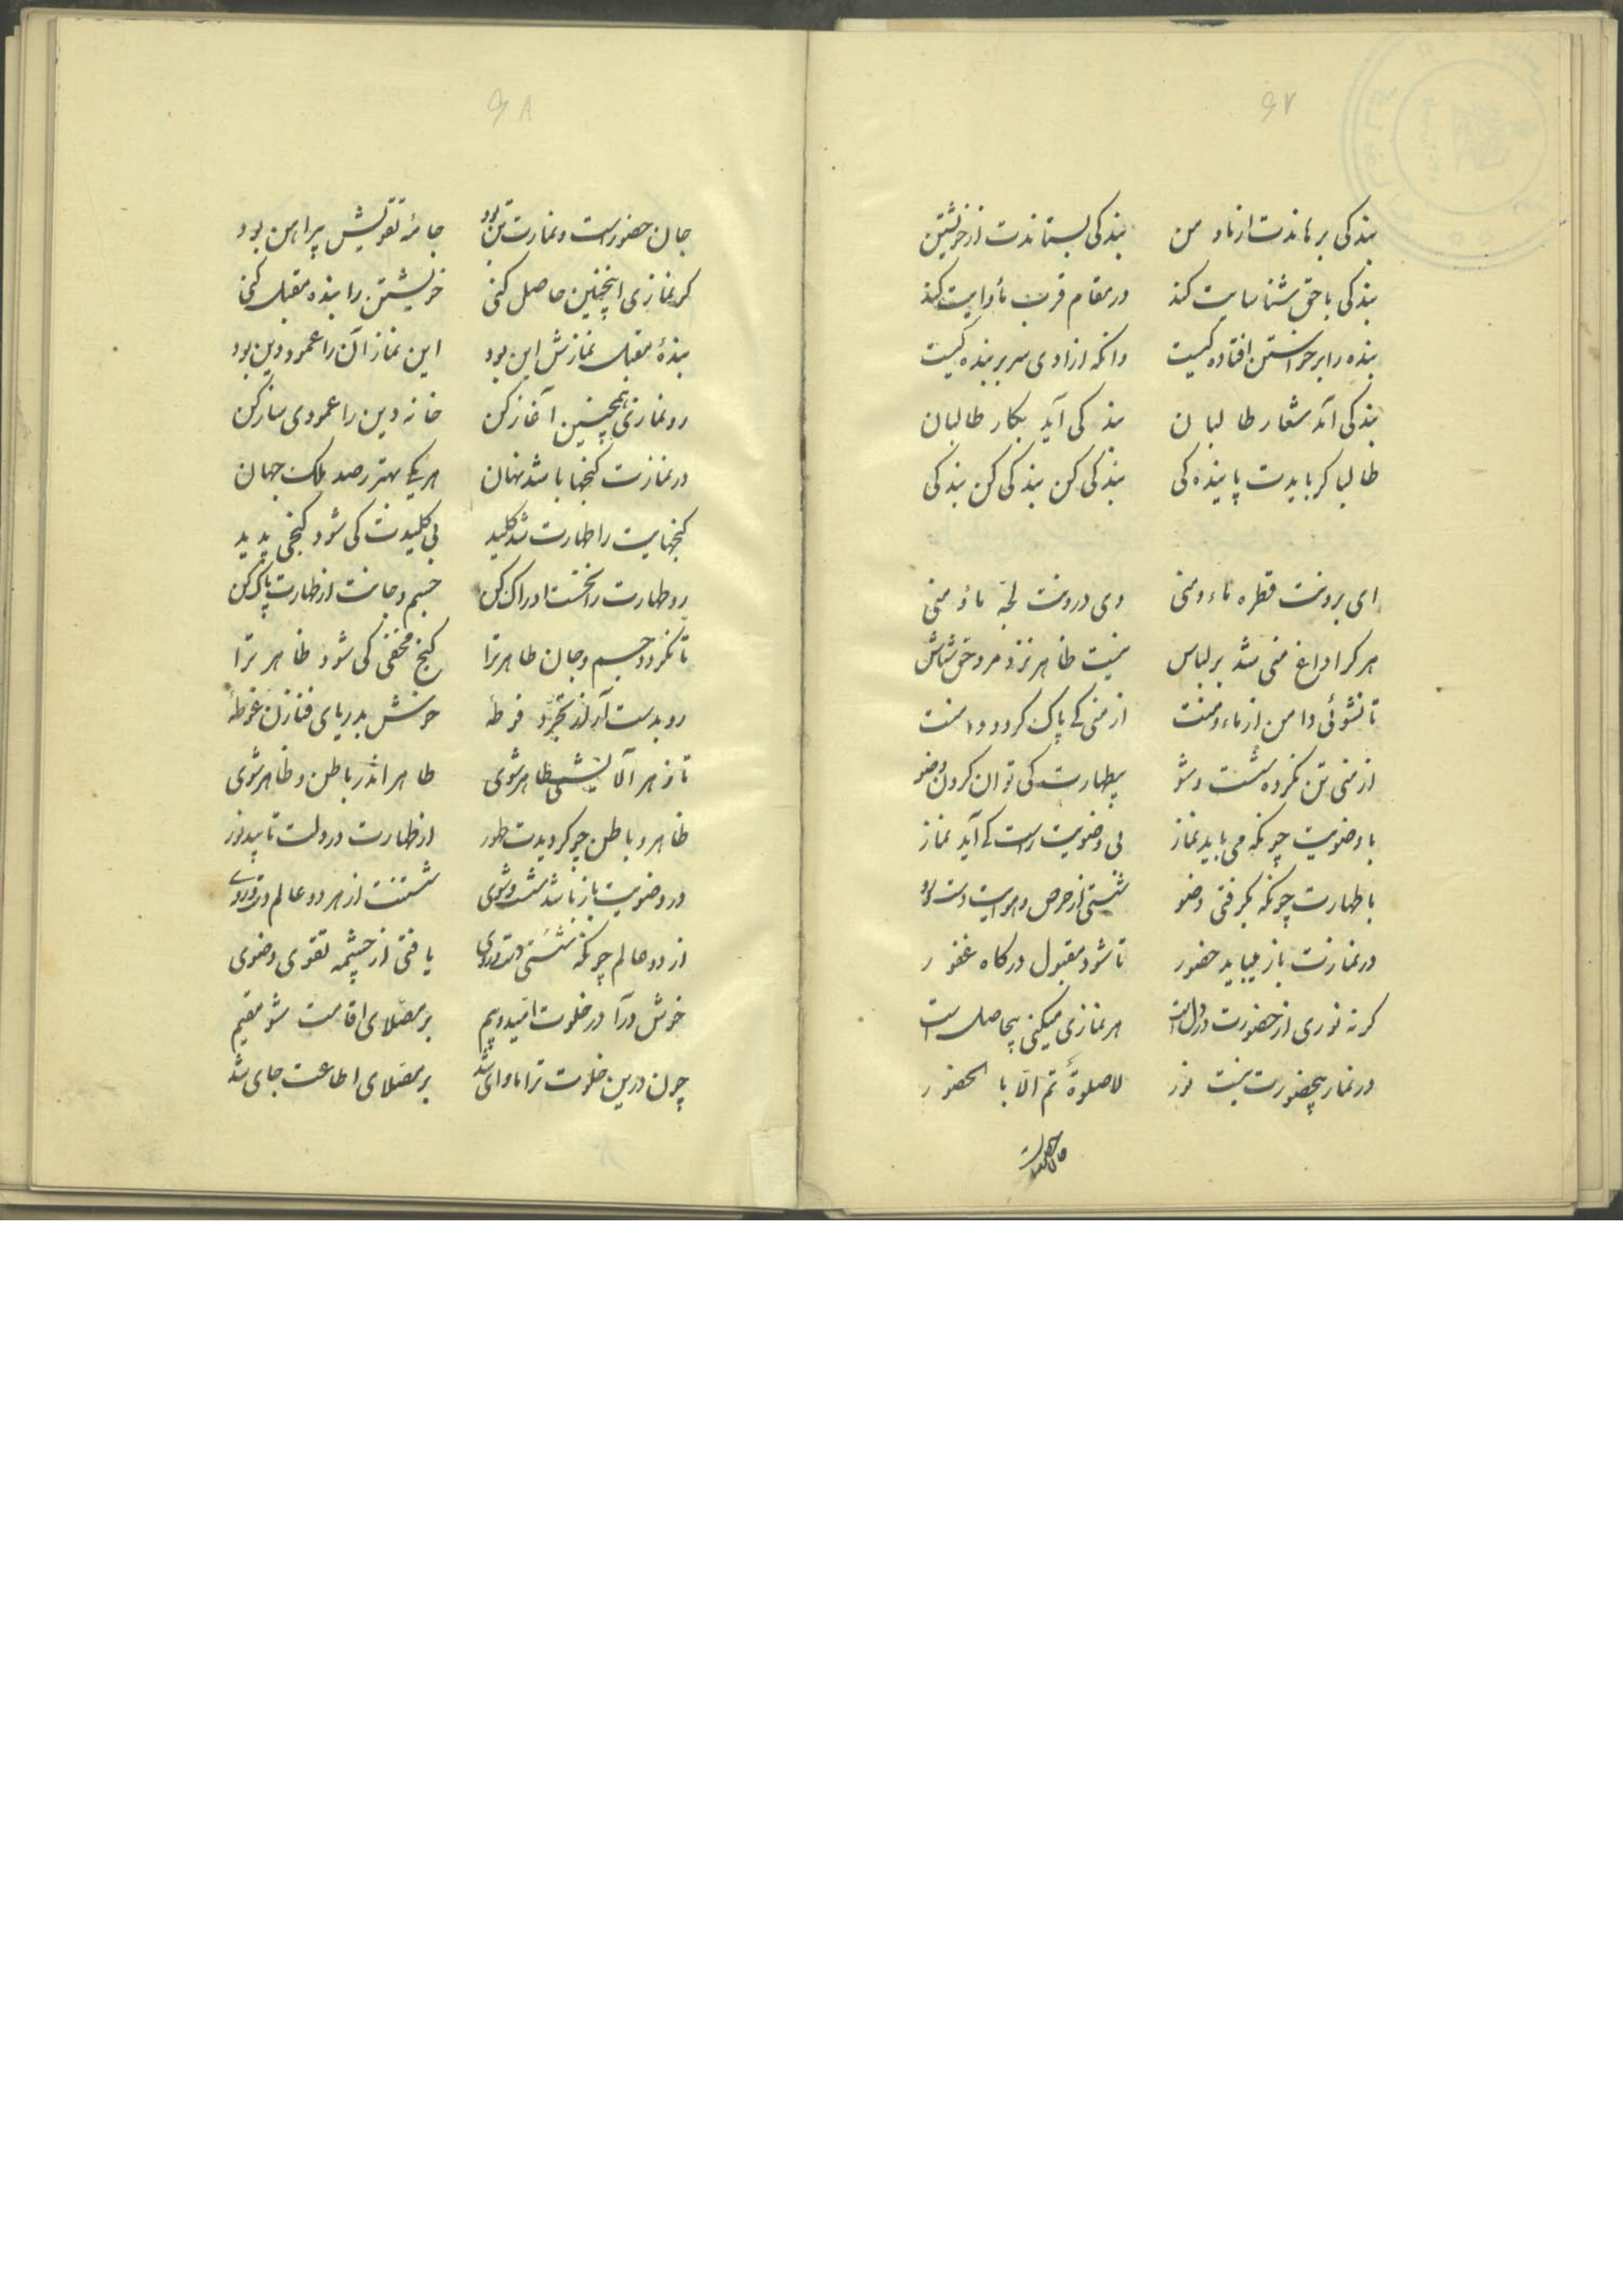 ۶۷
بندکی برهاندت از ما و من بندکی بستاندت از خویشتن
بندکی با حق شناسایت کند در مقام قرب مأوایت کند
بنده را برخواستن افتاده کیست وانکه ازادی سر بر بنده کیست
بندکی آمد شعار طالبان بندکی آید بکار طالبان
طالبا کر بایدت پایندکی بندکی کن بندکی کن بندکی
ای برونت قطره ماء و منی وی درونت لجّه ماؤ منی
هر کرا داغ منی شد بر لباس نیست طاهر نزد مرد حق شناس
تا نشوئی دامن از ماء و منت از منی کے پاک کردد دامنت
از منی تن نکرده شست و شو بیطهارت کی توان کردن وضو
با وضویت چونکه می باید نماز بی وضویت راست کے آید نماز
با طهارت چونکه بکرفتی وضو شستی از حرص و هوایت دست و رو
در نمازت باز میباید حضور تا شود مقبول درکاه غفور
کر نه نوری از حضورت در دل است هر نمازی میکنی بیحاصل است
در نماز بیحضورت نیست نور لا صلوة تم الّا بالحضور
جان حضور است
۶۸
جان حضور است و نمازت تن بود جامهٔ تقویش پیراهن بود
کر نمازی اینچنین حاصل کنی خویشتن را بنده مقبل کنی
بندهٔ مقبل نمازش این بود این نماز آن را عمود دین بود
رو نمازی همچنین آغاز کن خانه دین را عمودی ساز کن
در نمازت کنجها باشد نهان هر یکے بهتر ز صد ملک جهان
کنجهایت را طهارت شد کلید بی کلیدت کی شود کنجی پدید
رو طهارت را نخست ادراک کن جسم و جانت از طهارت پاک کن
تا نکردد جسم و جان طاهر ترا کنج مخفی کی شود ظاهر ترا
رو بدست آور از تجرّد فوطهٔ خوش بدریای فنا زن غوطهٔ
تا ز هر آلایشی طاهر شوی طاهر اندر باطن و ظاهر شوی
ظاهر و باطن چو کردیدت طهور از طهارت در دلت تابید نور
در وضویت باز باشد شست و شوی شستنت از هر دو عالم دست و روی
از دو عالم چونکه شستی دست و روی یافتی از چشمه تقوی وضوی
خوش درآ در خلوت امّید و بیم بر مصلّای اقامت شو مقیم
چون درین خلوت ترا ماوای شد بر مصلّای اطاعت جای شد